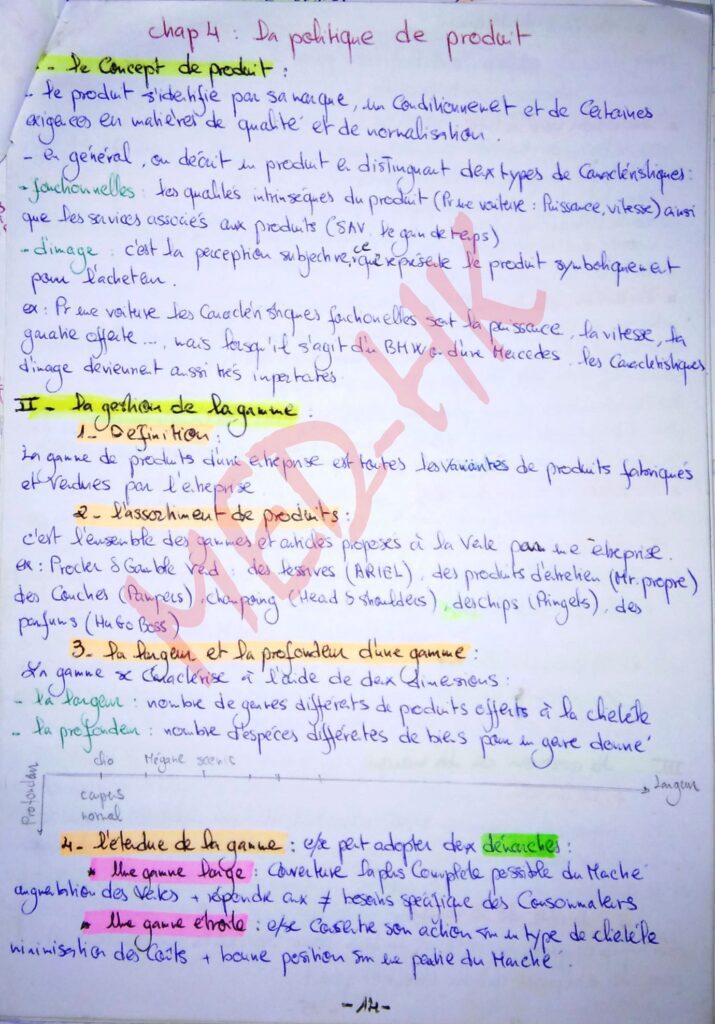 chap 4 : La politique de produit
I - Le Concept de produit :
- le produit s'identifie par sa marque, un Conditionnement et de Certaines
exigences en matières de qualité et de normalisation.
- en général, on décrit un produit en distinguant deux types de Caractéristiques :
- fonctionnelles : les qualités intrinsèques du produit (Pr une voiture : Puissance, vitesse) ainsi
que les services associés aux produits (SAV, le gain de temps)
- d'image : c'est la perception subjective, ce que représente le produit symboliquement
pour l'acheteur.
ex : Pr une voiture les Caractéristiques fonctionnelles sont la puissance, la vitesse, la
garantie offerte ..., mais lorsqu'il s'agit d'un BMW ou d'une Mercedes. les Caractéristiques
d'image deviennent aussi très importantes.
II - la gestion de la gamme :
1- Définition :
La gamme de produits d'une entreprise est toutes les variantes de produits fabriqués
et vendues par l'entreprise
2- l'assortiment de produits :
c'est l'ensemble des gammes et articles proposés à la Vente par une entreprise.
ex : Procter & Gamble vend : des lessives (ARIEL), des produits d'entretien (Mr. propre)
des Couches (Pampers), champoing (Head & shoulders), des chips (Pringels), des
parfums (Hugo Boss)
3- la largeur et la profondeur d'une gamme :
Une gamme se Caractérise à l'aide de deux dimensions :
- la largeur : nombre de genres différents de produits offerts à la clientèle
- la profondeur : nombre d'espèces différentes de biens pour un genre donné
clio Mégane scenic
Largeur
Profondeur
campus
normal
4- l'étendue de la gamme : e/se peut adopter deux démarches :
* Une gamme large : Couverture la plus Complète possible du Marché
augmentation des Ventes + répondre aux ≠ besoins spécifique des Consommateurs
* Une gamme étroite : e/se Concentre son action sur un type de clientèle
minimisation des Coûts + bonne position sur une partie du Marché.
MED-HK